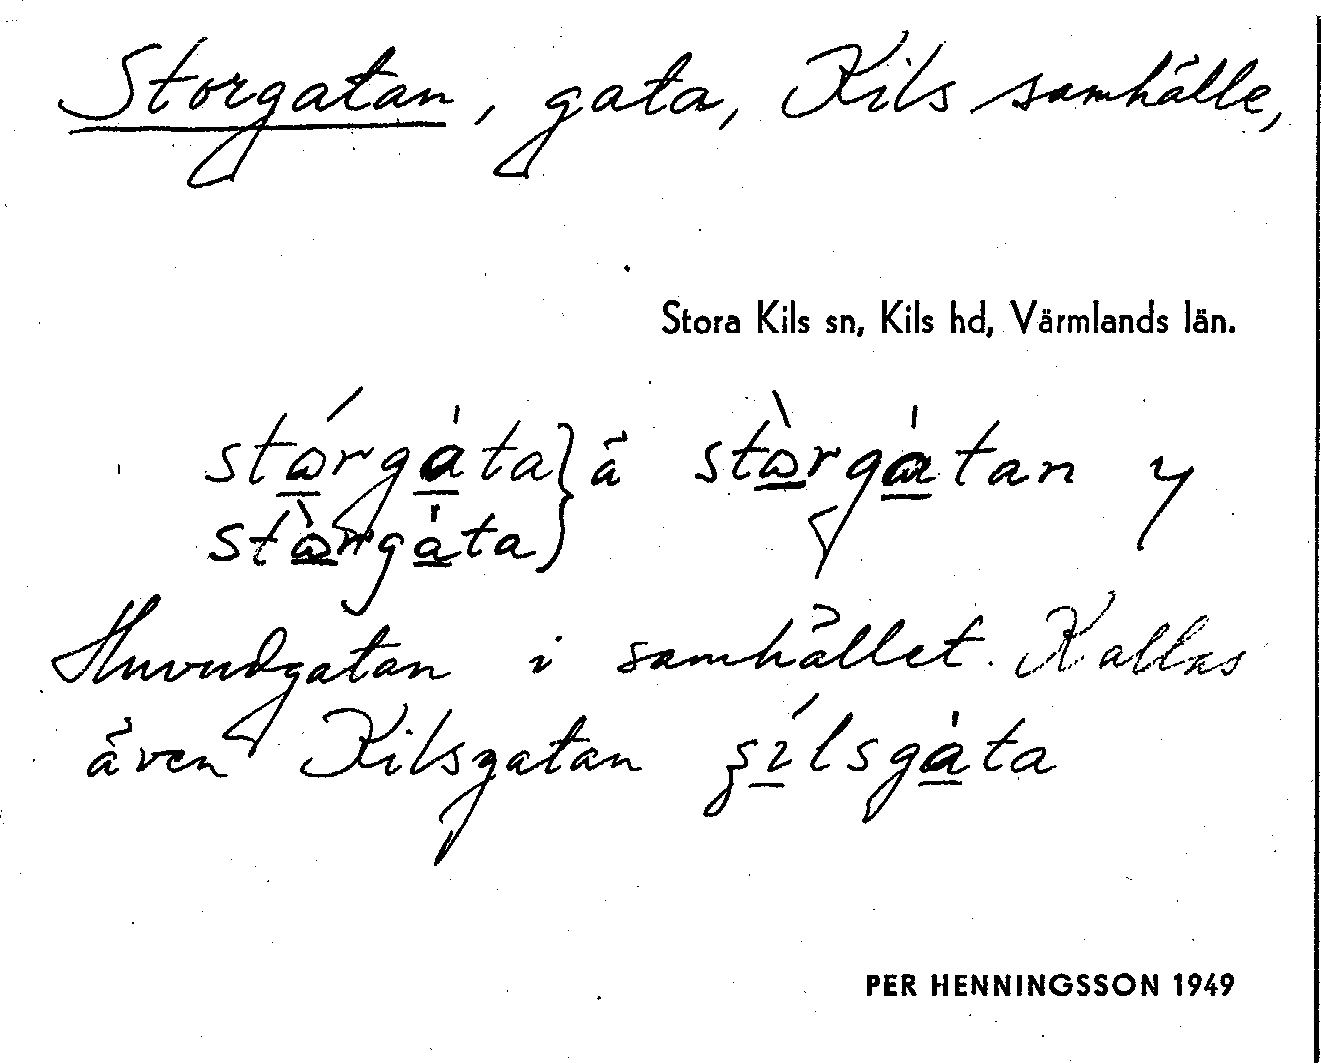 Storgatan, gata, Kils samhälle,
Stora Kils sn, Kils hd, Värmlands län.
stórgàta } ä stòrgàtan y
stòrgàta
Huvudgatan i samhället. Kallas
även Kilsgatan ʂílsgàta
PER HENNINGSSON 1949